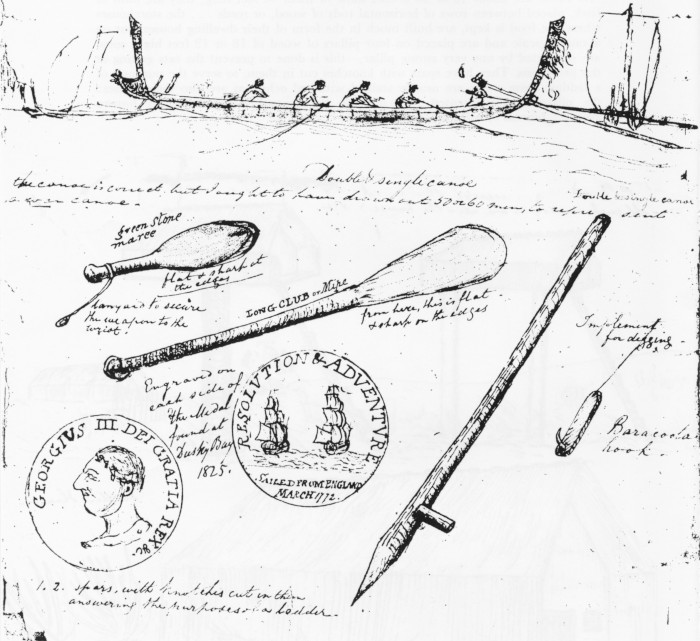 Double & single canoe
the canoe is correct, but I ought to have drawn out 50 or 60 men, to repre sent
a war canoe.
Double & single canoe
green Stone
maree
flat & sharp at
the edges
lanyard to secure
the weapon to the
wrist.
LONG CLUB or Mire
from here, this is flat
& sharp on the edges
Implement
for digging
Baracoota
hook.
Engraved on
each side of
the Medal
found at
Dusky Bay
1825.
RESOLUTION & ADVENTVRE
SAILED FROM ENGLAND
MARCH 1772.
GEORGIVS III DEI GRATIA REX &c
1. 2. spars, with knotches cut in them
answering the purposes of a ladder.